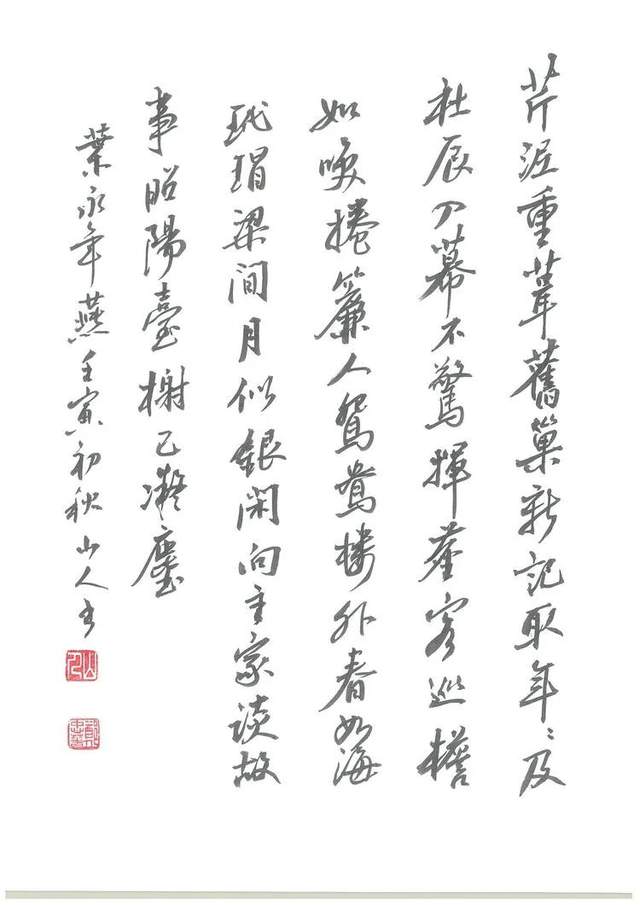 芹泥重葺舊巢新記取年〻及
社辰入幕不驚揮麈客巡檐
如喚捲簾人鴛鴦樓外春如海
玳瑁梁間月似銀閑向主家談故
事昭陽臺榭已凝塵
葉永年燕壬寅初秋山人書
山人